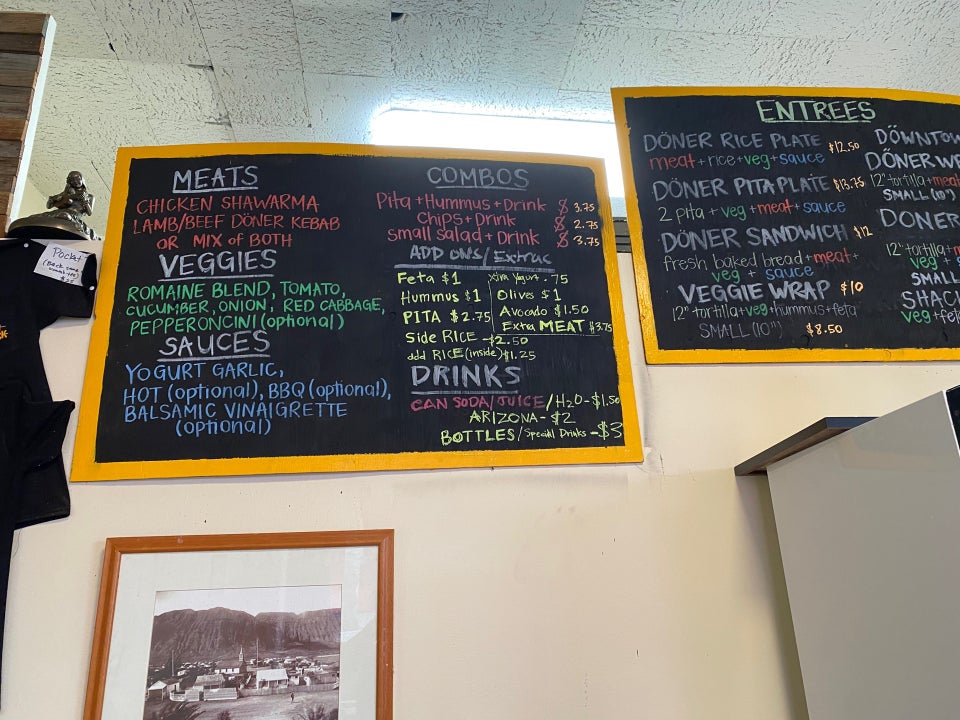 Pocket
MEATS
CHICKEN SHAWARMA
LAMB/BEEF DÖNER KEBAB
OR MIX of BOTH
VEGGIES
ROMAINE BLEND, TOMATO,
CUCUMBER, ONION, RED CABBAGE,
PEPPERONCINI (optional)
SAUCES
YOGURT GARLIC,
HOT (optional), BBQ (optional),
BALSAMIC VINAIGRETTE
(optional)
COMBOS
Pita + Hummus + Drink $3.75
Chips + Drink $2.75
Small salad + Drink $3.75
ADD ONS/Extras
Feta $1
Hummus $1
PITA $2.75
Side RICE - $2.50
add RICE (inside) $1.25
xtra Yogurt .75
Olives $1
Avocado $1.50
Extra MEAT $3.75
DRINKS
CAN SODA/JUICE/H2O - $1.50
ARIZONA - $2
BOTTLES/Special Drinks - $3
ENTREES
DÖNER RICE PLATE $12.50
meat + rice + veg + sauce
DÖNER PITA PLATE $13.75
2 pita + veg + meat + sauce
DÖNER SANDWICH $12
fresh baked bread + meat +
veg + sauce
VEGGIE WRAP $10
12" tortilla + veg + hummus + feta
SMALL (10") $8.50
DÖWNTOW
DÖNER WR
12" tortilla + meat
SMALL (10")
DONER
12" tortilla + m
veg +
SMALL
SHAC
veg + fe